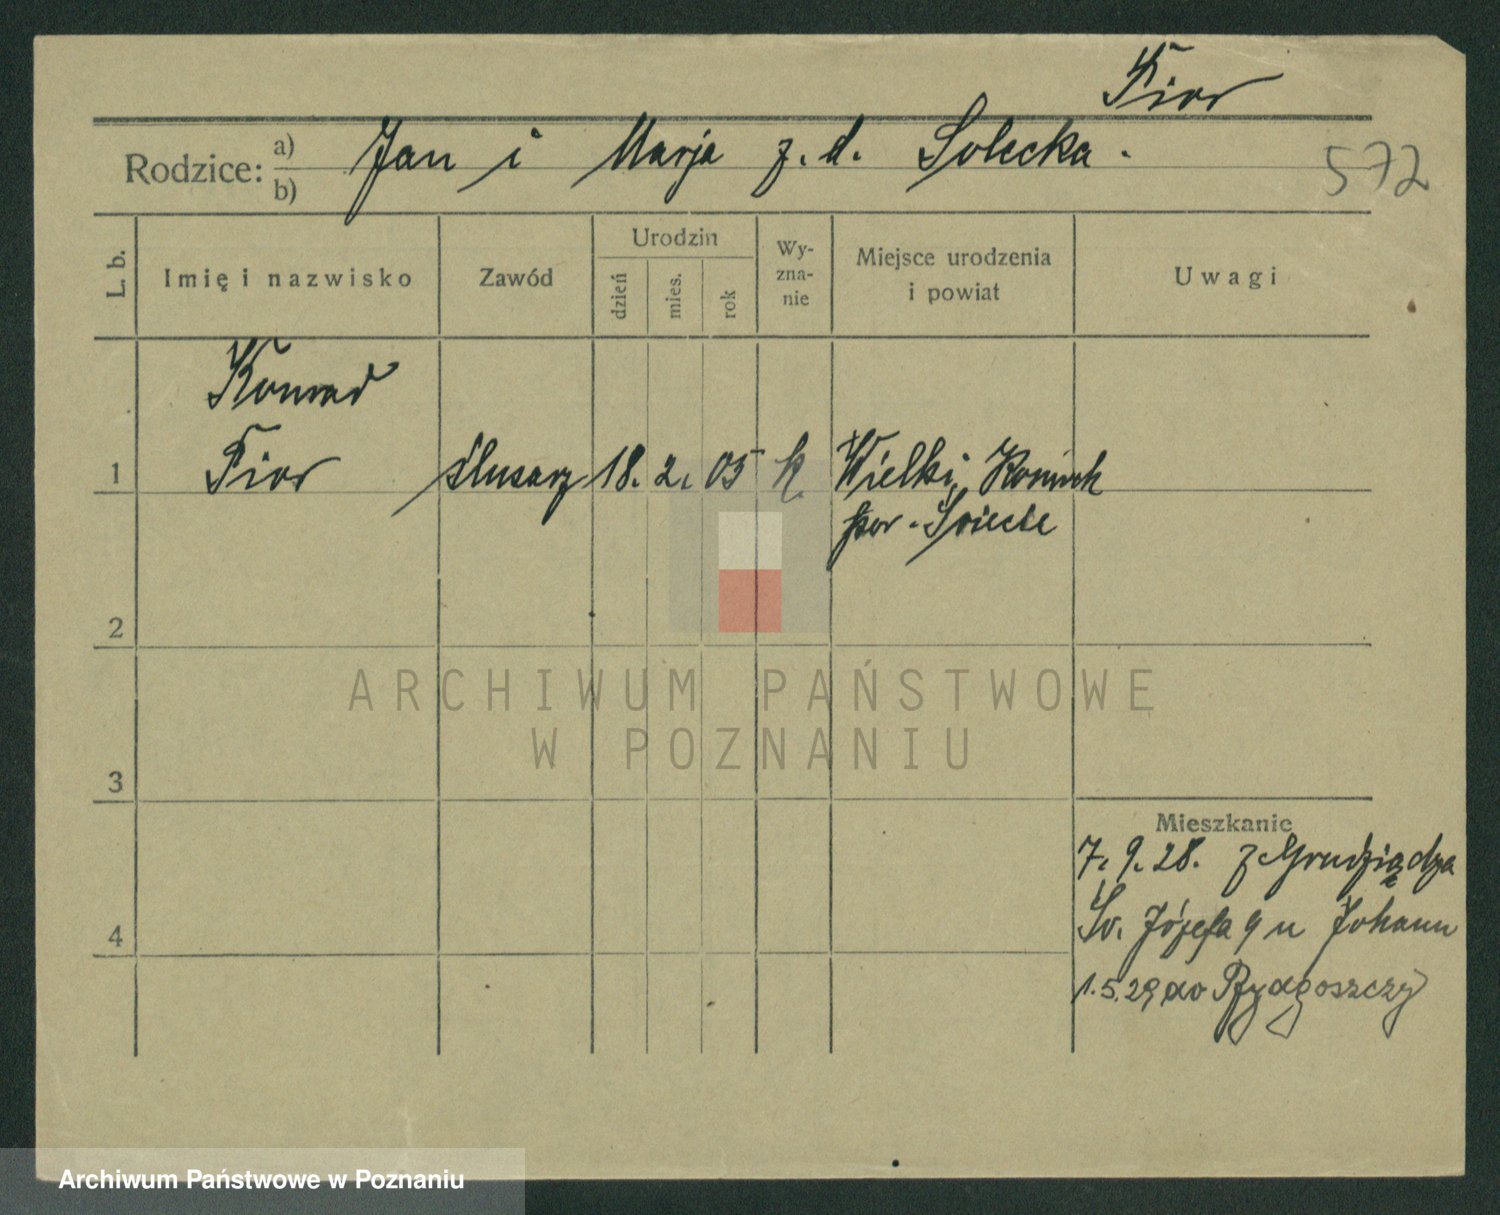 Fior
Rodzice: a) b) Jan i Marja z. d. Solecka.
572
L. b.
Imię i nazwisko
Zawód
Urodzin
dzień
mies.
rok
Wy-
zna-
nie
Miejsce urodzenia
i powiat
Uwagi
Konrad
1 Fior ślusarz 18. 2. 05 k. Wielki
pow. Świecie
2
3
4
ARCHIWUM PAŃSTWOWE
W POZNANIU
Mieszkanie
7. 9. 28. z Grudziądza
Św. Józefa 9 u Johann
1.5.29 do Bydgoszczy
Archiwum Państwowe w Poznaniu